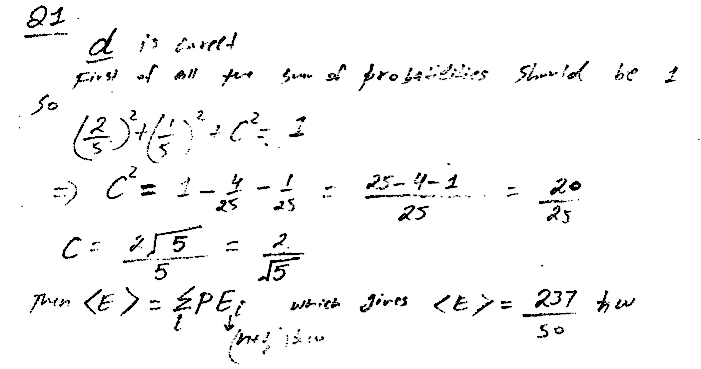 Q1
d is correct
First of all the sum of probabilities should be 1
So
(2/5)² + (1/5)² + C² = 1
=> C² = 1 - 4/25 - 1/25 = 25-4-1/25 = 20/25
C = 2√5/5 = 2/√5
Then <E> = Σ_i P E_i which gives <E> = 237/50 ħω